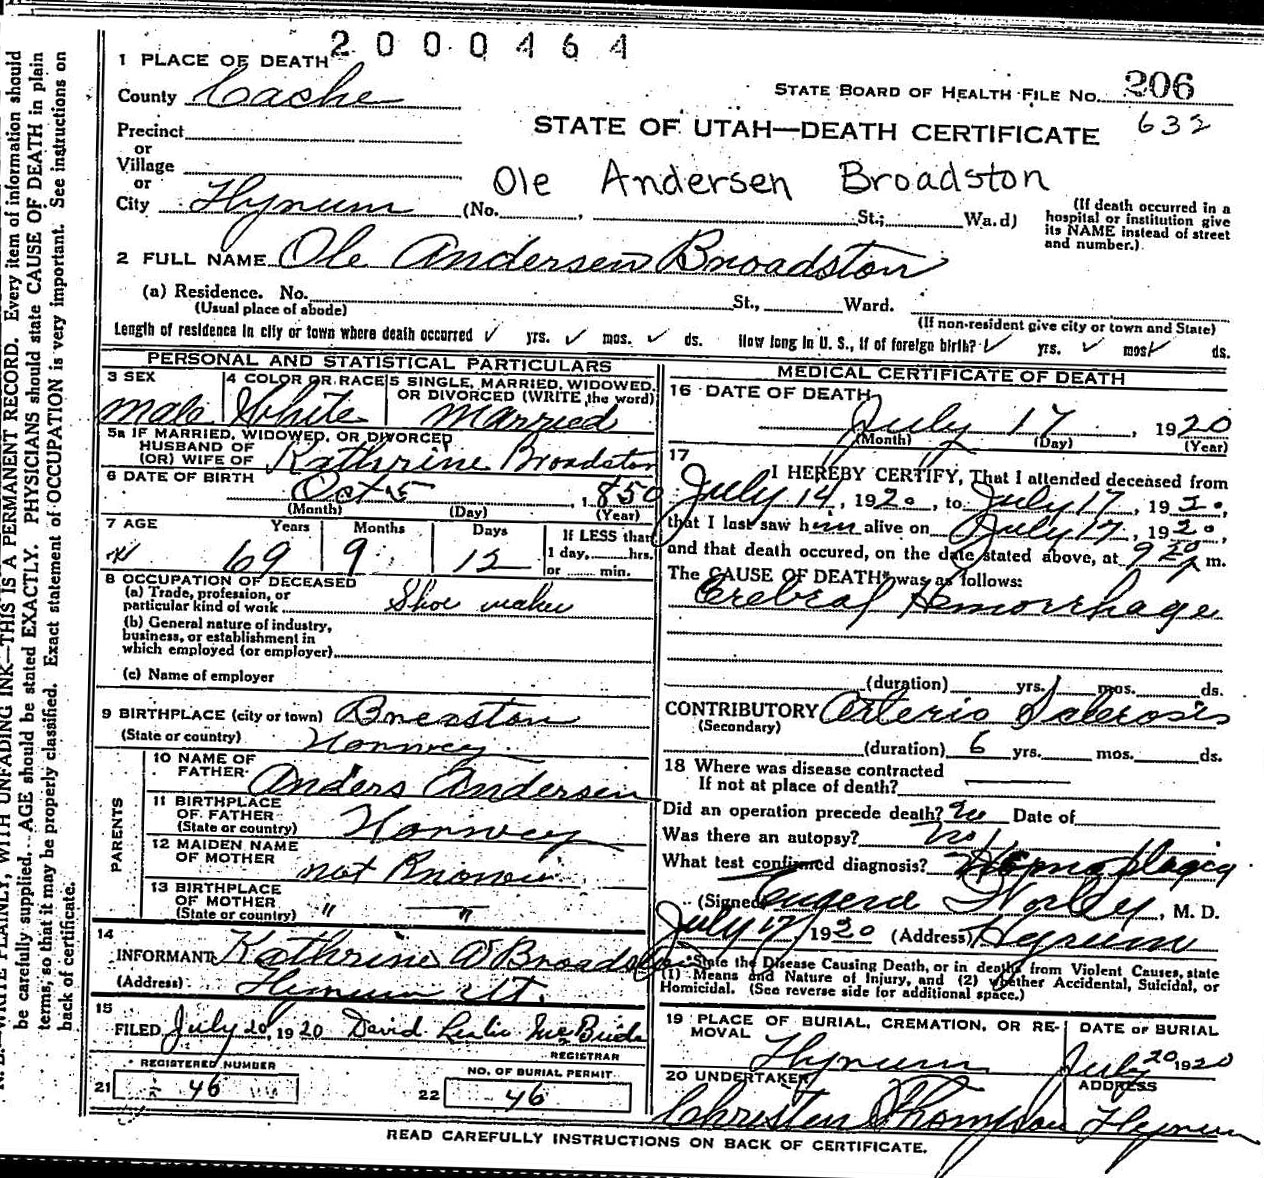 2000464
1 PLACE OF DEATH
STATE BOARD OF HEALTH FILE No. 206
County Cache
632
STATE OF UTAH—DEATH CERTIFICATE
Precinct
or
Village
or
Ole Andersen Broadston
City Hyrum (No. , St.; Wa.d)
(If death occurred in a
hospital or institution give
its NAME instead of street
and number.)
2 FULL NAME Ole Andersen Broadston
(a) Residence. No. St., Ward.
(Usual place of abode)
(If non-resident give city or town and State)
Length of residence in city or town where death occurred ✓ yrs. ✓ mos. ✓ ds. How long in U. S., if of foreign birth? ✓ yrs. ✓ mos. ✓ ds.
PERSONAL AND STATISTICAL PARTICULARS
3 SEX
male
4 COLOR OR RACE
White
5 SINGLE, MARRIED, WIDOWED,
OR DIVORCED (WRITE the word)
Married
5a IF MARRIED, WIDOWED, OR DIVORCED
HUSBAND OF
(OR) WIFE OF Kathrine Broadston
6 DATE OF BIRTH
Oct 5, 1850
(Month) (Day) (Year)
7 AGE
Years Months Days
69 9 12
If LESS than
1 day, hrs.
or min.
8 OCCUPATION OF DECEASED
(a) Trade, profession, or
particular kind of work Shoe maker
(b) General nature of industry,
business, or establishment in
which employed (or employer)
(c) Name of employer
9 BIRTHPLACE (city or town)
(State or country) Norway
PARENTS
10 NAME OF
FATHER Anders Andersen
11 BIRTHPLACE
OF FATHER
(State or country) Norway
12 MAIDEN NAME
OF MOTHER not Known
13 BIRTHPLACE
OF MOTHER
(State or country) " — "
14
INFORMANT Kathrine A Broadston
(Address) Hyrum Ut.
15
FILED July 20, 1920 David Leslie McBride
REGISTRAR
REGISTERED NUMBER
21 46
NO. OF BURIAL PERMIT
22 46
MEDICAL CERTIFICATE OF DEATH
16 DATE OF DEATH
July 17, 1920
(Month) (Day) (Year)
17
I HEREBY CERTIFY, That I attended deceased from
July 14, 1920, to July 17, 1920,
that I last saw him alive on July 17, 1920,
and that death occured, on the date stated above, at 9 20 m.
The CAUSE OF DEATH* was as follows:
Cerebral Hemorrhage
(duration) yrs. mos. ds.
CONTRIBUTORY Arterio Sclerosis
(Secondary)
(duration) 6 yrs. mos. ds.
18 Where was disease contracted
If not at place of death?
Did an operation precede death? no Date of
Was there an autopsy? no
What test confirmed diagnosis?
(Signed) Eugene Worley, M. D.
July 17, 1920 (Address) Hyrum
*State the Disease Causing Death, or in deaths from Violent Causes, state
(1) Means and Nature of Injury, and (2) whether Accidental, Suicidal, or
Homicidal. (See reverse side for additional space.)
19 PLACE OF BURIAL, CREMATION, OR RE-
MOVAL
Hyrum
DATE OF BURIAL
July 20 1920
20 UNDERTAKER
Christen Thompson
ADDRESS
Hyrum
READ CAREFULLY INSTRUCTIONS ON BACK OF CERTIFICATE.
WRITE PLAINLY, WITH UNFADING INK—THIS IS A PERMANENT RECORD. Every item of information should
be carefully supplied. AGE should be stated EXACTLY. PHYSICIANS should state CAUSE OF DEATH in plain
terms, so that it may be properly classified. Exact statement of OCCUPATION is very important. See instructions on
back of certificate.